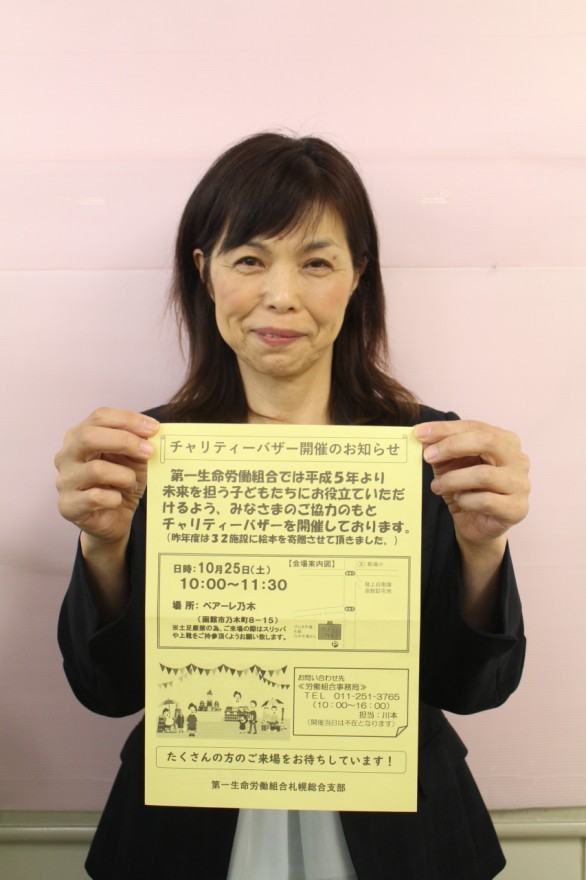 チャリティーバザー開催のお知らせ
第一生命労働組合では平成5年より
未来を担う子どもたちにお役立ていただ
けるよう、みなさまのご協力のもと
チャリティーバザーを開催しております。
（昨年度は32施設に絵本を寄贈させて頂きました。）
日時：10月25日（土）
10：00～11：30
場 所： ペアーレ乃木
（函館市乃木町8－15）
※土足厳禁の為、ご来場の際はスリッパ
や上靴をご持参頂くようお願い致します。
【会場案内図】
陸上自衛隊
函館駐屯地
お問い合わせ先
≪労働組合事務局≫
TEL 011-251-3765
（10：00～16：00）
担当：川本
（開催当日は不在となります）
たくさんの方のご来場をお待ちしています！
第一生命労働組合札幌総合支部